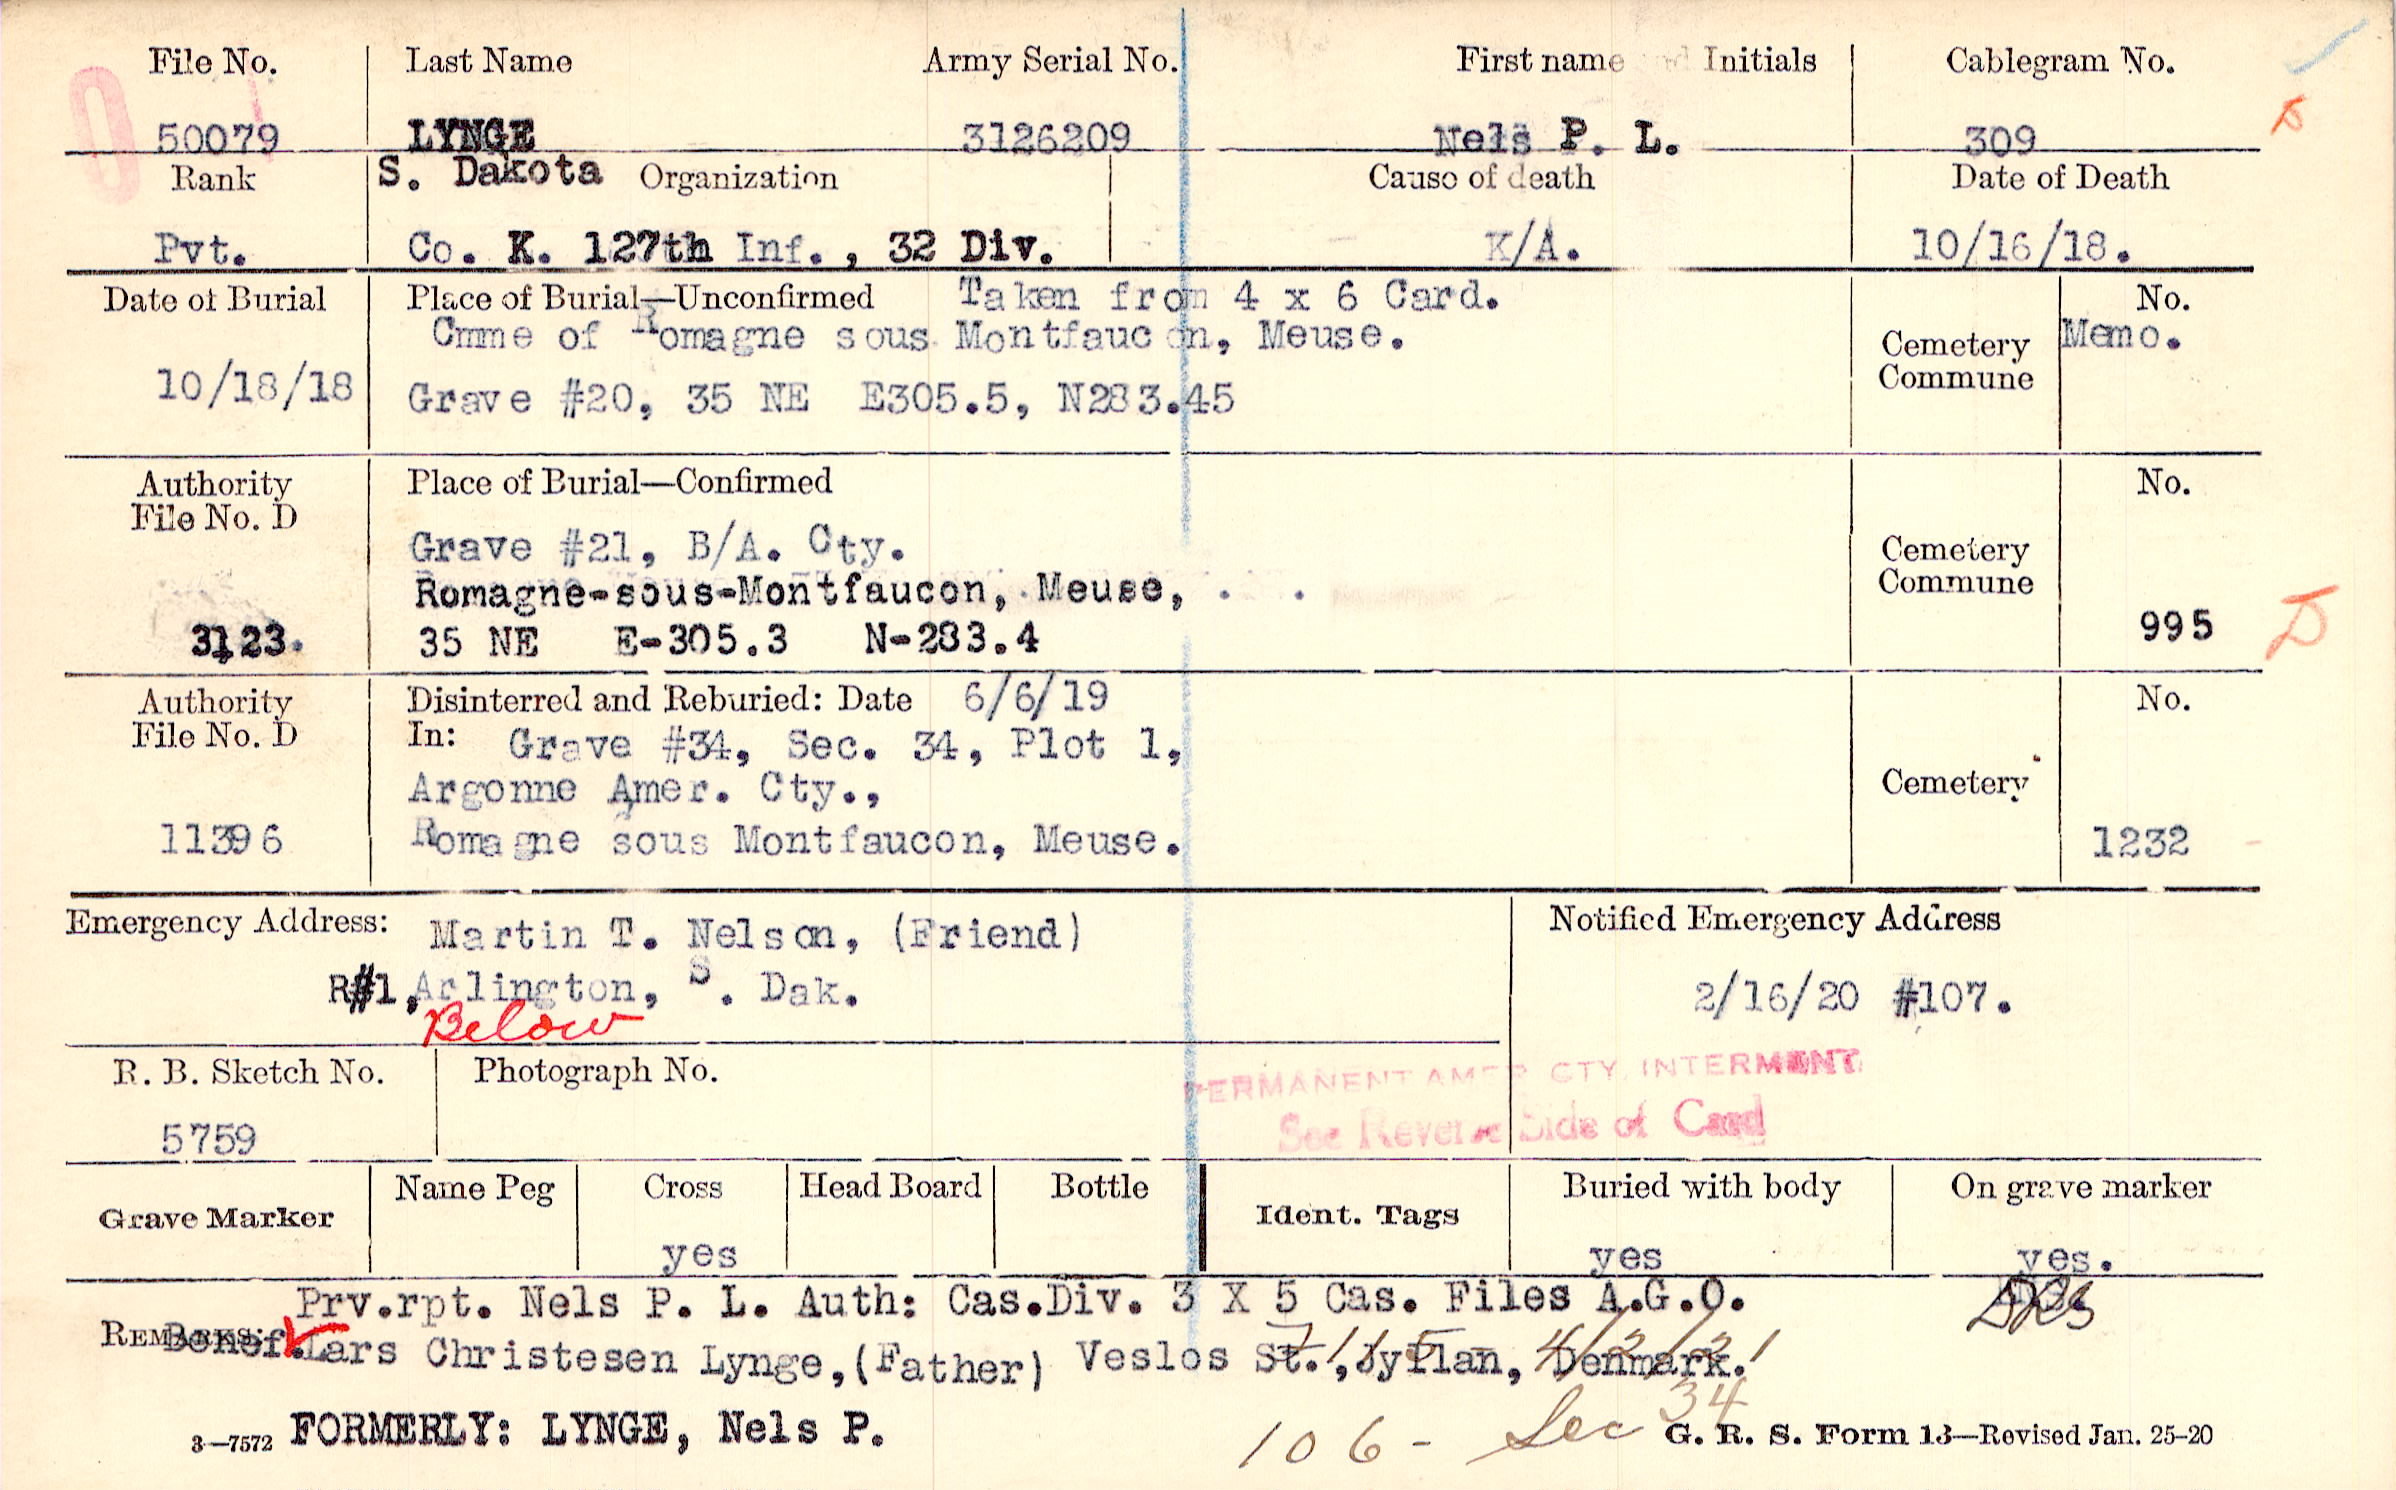 File No. Last Name Army Serial No. First name and Initials Cablegram No.
50079 LYNGE 3126209 Nels P. L. 309
Rank S. Dakota Organization Cause of death Date of Death
Pvt. Co. K. 127th Inf., 32 Div. K/A. 10/16/18.
Date of Burial Place of Burial—Unconfirmed Taken from 4 x 6 Card. No.
Cmme of Romagne sous Montfaucon, Meuse. Cemetery Memo.
10/18/18 Grave #20, 35 NE E305.5, N283.45 Commune
Authority Place of Burial—Confirmed No.
File No. D
Grave #21, B/A. Cty. Cemetery
Romagne-sous-Montfaucon, Meuse, Commune
3123. 35 NE E-305.3 N-283.4 995
D
Authority Disinterred and Reburied: Date 6/6/19 No.
File No. D In: Grave #34, Sec. 34, Plot 1,
Argonne Amer. Cty., Cemetery
11396 Romagne sous Montfaucon, Meuse. 1232
Emergency Address: Martin T. Nelson, (Friend) Notified Emergency Address
R#1, Arlington, S. Dak. 2/16/20 #107.
Below
R. B. Sketch No. Photograph No. PERMANENT AMER CTY. INTERMENT
See Reverse Side of Card
5759
Name Peg Cross Head Board Bottle Buried with body On grave marker
Grave Marker Ident. Tags
yes yes yes.
Prv.rpt. Nels P. L. Auth: Cas.Div. 3 X 5 Cas. Files A.G.O.
REMARKS: Benef. Lars Christesen Lynge,(Father) Veslos St.,Jyllan, Denmark.
3—7572 FORMERLY: LYNGE, Nels P. 106 - Sec 34 G. R. S. Form 13—Revised Jan. 25-20